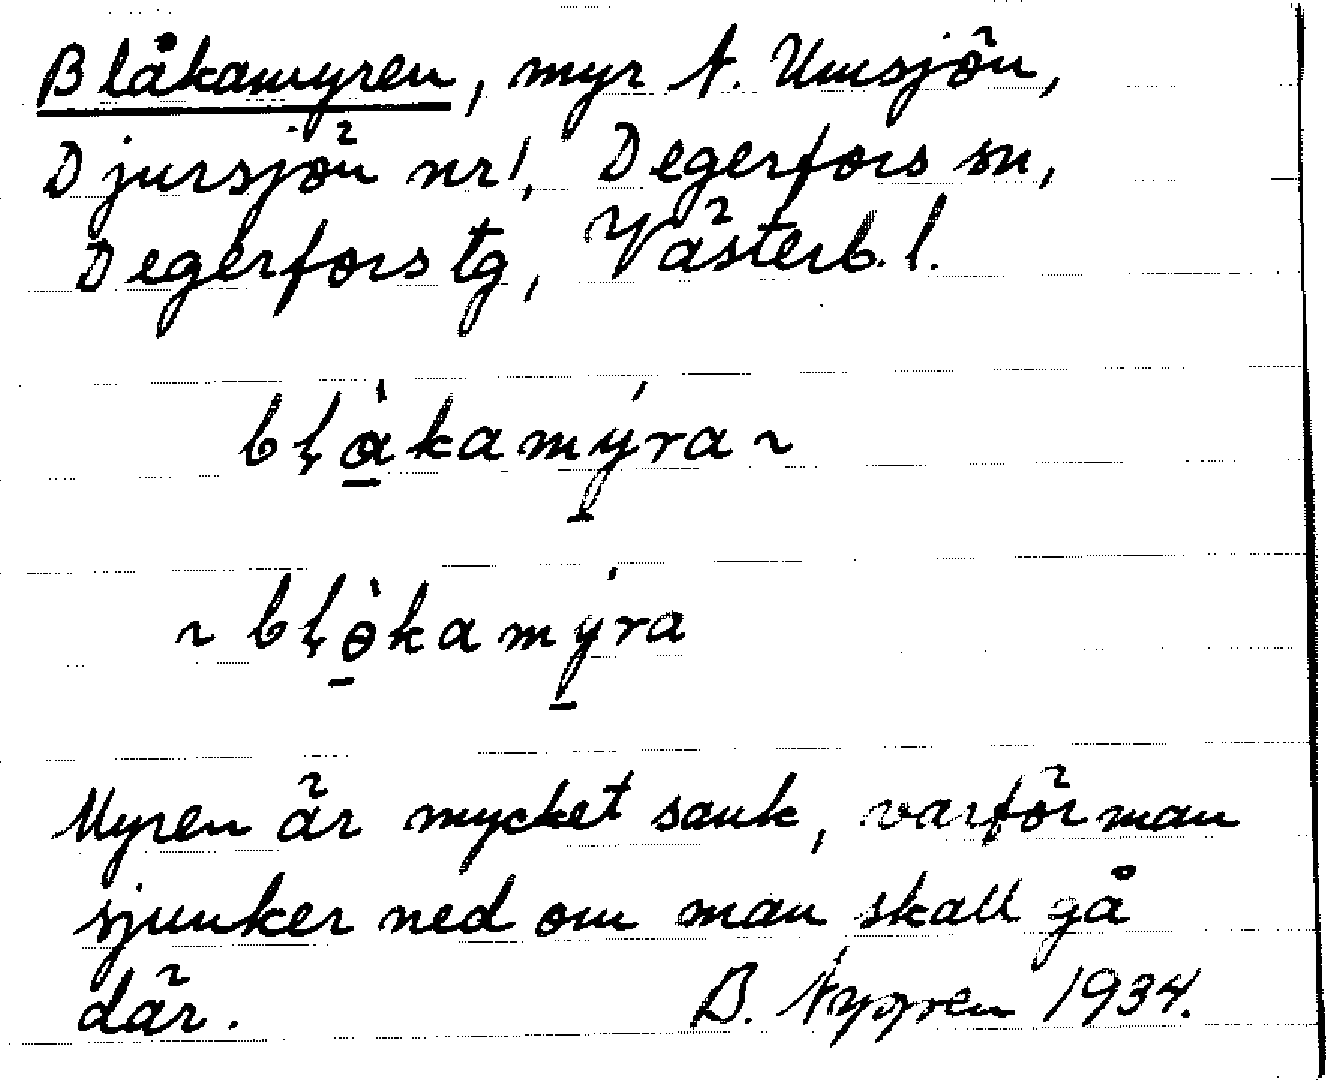 Blåkamyren, myr N. Umsjön,
Djursjön nr 1, Degerfors sn,
Degerfors tg, Västerb. l.
bḷà̱kamý̱ra ~
~ bḷò̱kamý̱ra
Myren är mycket sank, varför man
sjunker ned om man skall gå
där. B. Nygren 1934.